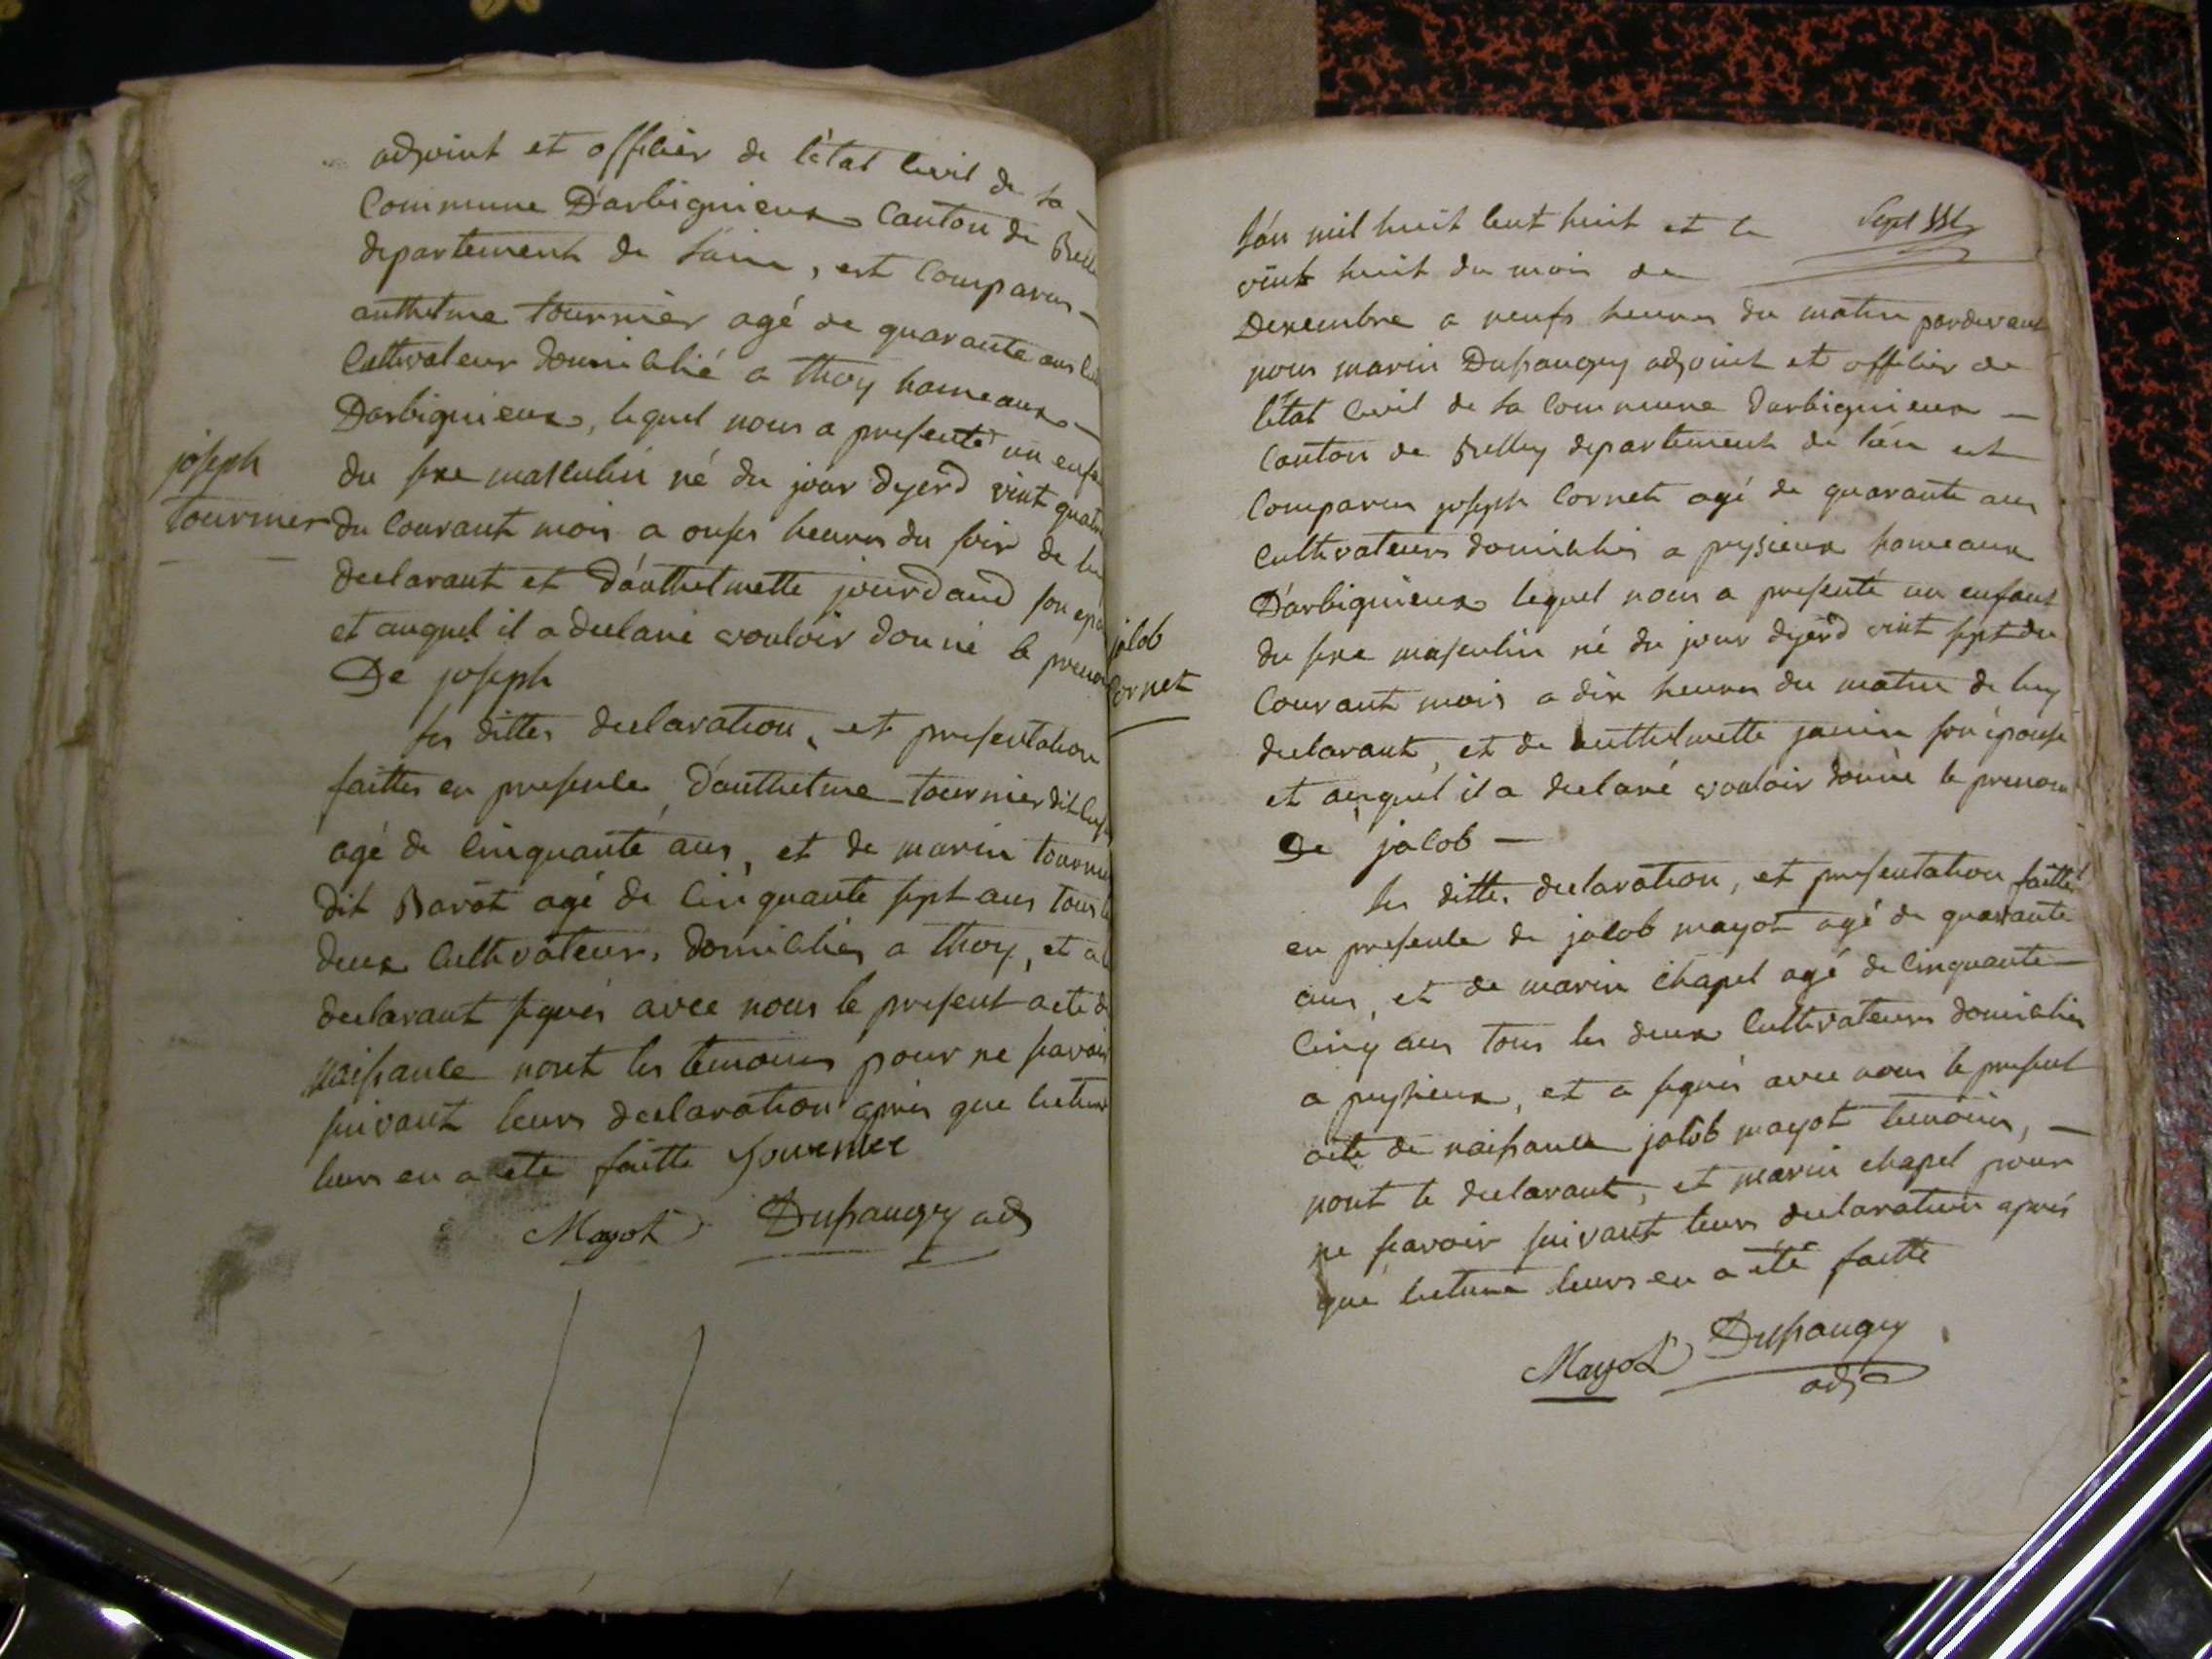 adjoint et officier de l'état civil de la
Commune D'arbignieux Canton de Belle
departement de l'ain, est Comparus
anthelme tournier agé de quarante ans
Cultivateur domicilié a thoy hameaux
Darbignieux, lequel nous a presenté un enfa
du sexe masculin né du jour dyerd vint quatre
joseph
tournier
du Courant mois a onses heures du soir de lui
declarant et d'anthelmette jourdand son epou
et auquel il a declaré vouloir donné le prenom
De joseph
les dittes declaration, et presentation
faittes en presence, D'anthelme tournier dit
agé de Cinquante ans, et de marin tournie
dit Barot agé de Cinquante sept ans tous l
deux Cultivateurs domicilies a thoy, et a le
declarant signés avec nous le present acte d
naissance nont les temoins pour ne savoir
suivant leurs declaration apres que lecture
leurs en a ete faitte tournier
Mayot Dupaugey adj
l'an mil huit Cent huit et le
vint huit du mois de
Desembre a neufs heures du matin pardevant
nous marin Dupaugey adjoint et officier de
l'état Civil de la Commune darbignieux
Canton de Belley departement de l'ain est
Comparus joseph Cornet agé de quarante ans
cultivateurs domicilies a peysieux hameaux
D'arbignieux lequel nous a presenté un enfant
jacob
Cornet
du sexe masculin né du jour dyerd vint sept du
Courant mois a dix heures du matin de luy
declarant, et de anthelmette janin son épouse
et auquel il a declaré vouloir donné le prenom
De jacob
les dittes declaration, et presentation faittes
en presence de jacob mayot agé de quarante
ans, et de marin chapel agé de Cinquante
Cinq ans tous les deux Cultivateurs domicilies
a peysieux, et a signés avec nous le present
acte de naissance jacob mayot temoins,
nont le declarant, et marin chapel pour
ne savoir suivant leurs declaration aprés
que lecture leurs en a été faitte
Mayot Dupaugey
adj